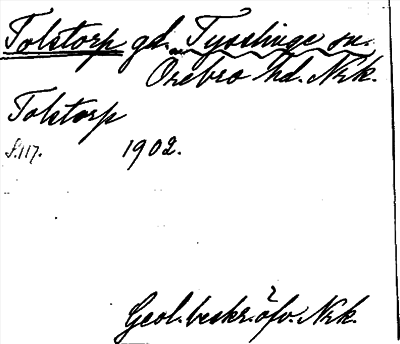 Tolstorp gd. Tysslinge sn.
Örebro hd. Nrk.
Tolstorp
S.117. 1902.
Geol. beskr. öfv. Nrk.